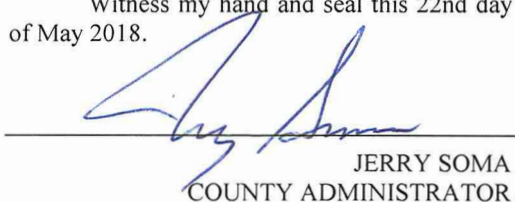 Witness my hand and seal this 22nd day
of May 2018.
Jerry Soma
JERRY SOMA
COUNTY ADMINISTRATOR